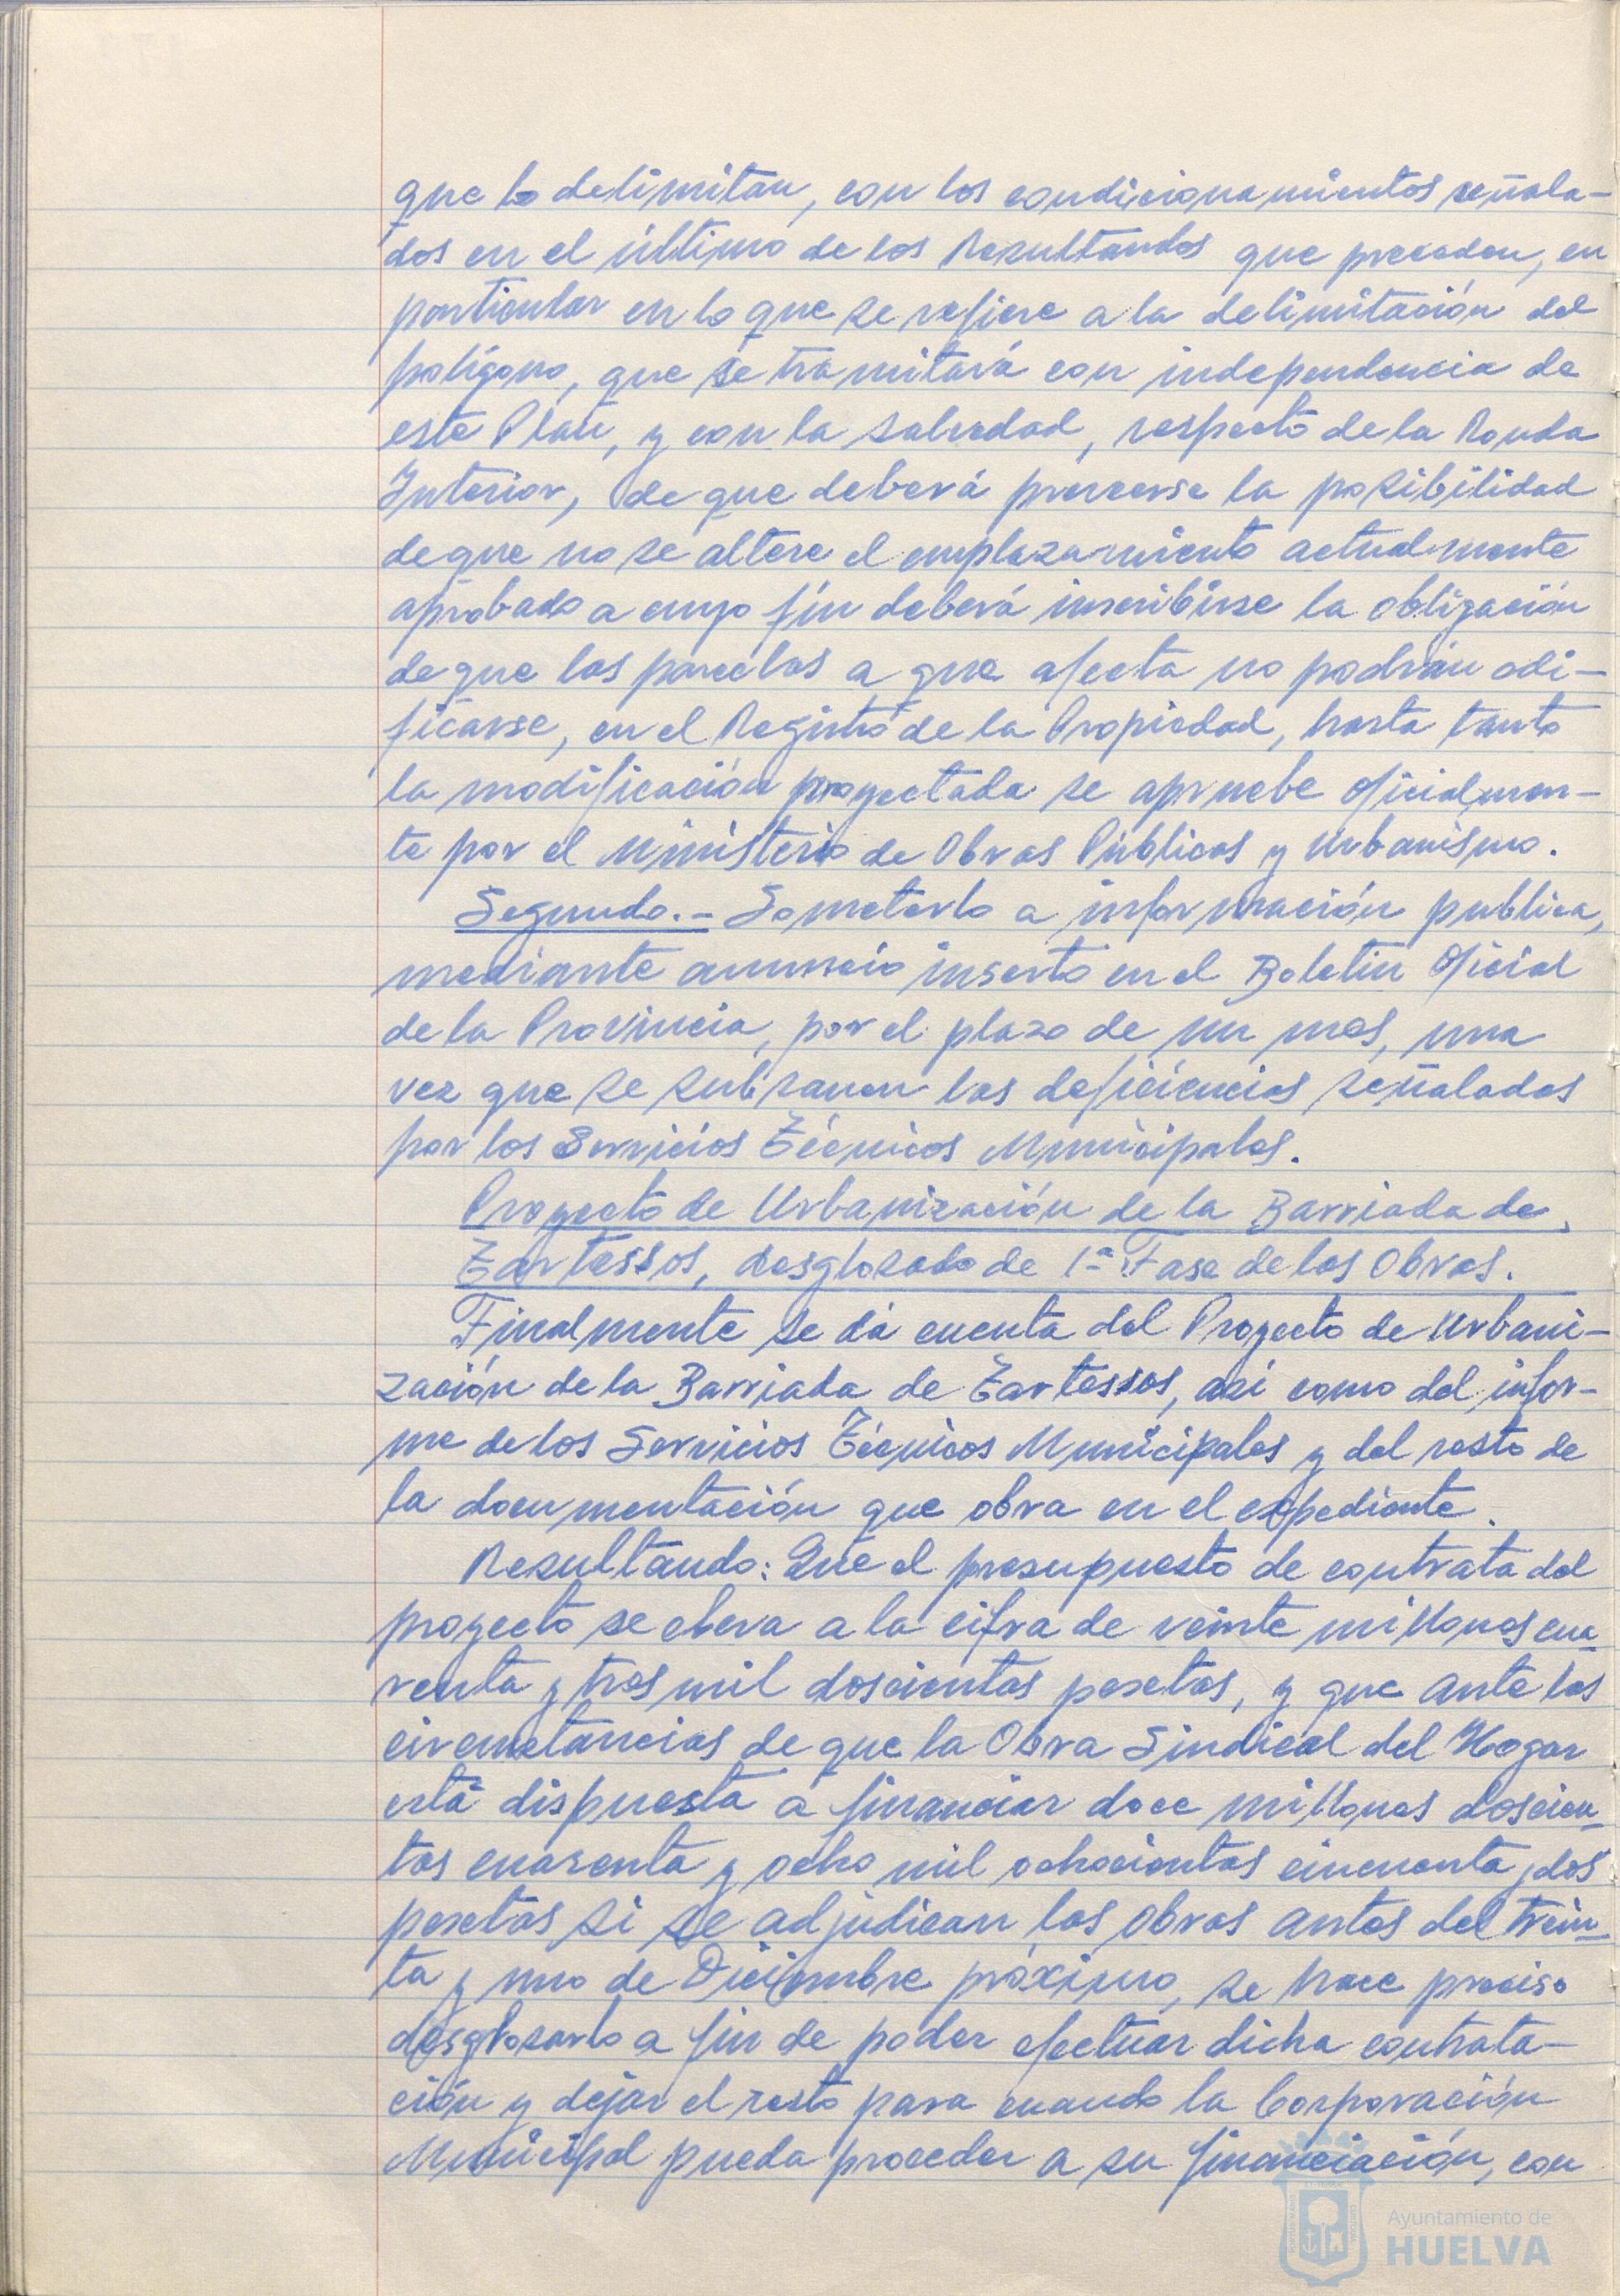 que lo delimitan, con los condicionamientos señala-
dos en el último de los Resultandos que preceden, en
particular en lo que se refiere a la delimitación del
polígono, que se tramitará con independencia de
este Plan, y con la salvedad, respecto de la Ronda
Interior, de que deberá preveerse la posibilidad
de que no se altere el emplazamiento actualmente
aprobado a cuyo fín deberá inscribirse la obligación
de que las parcelas a que afecta no podrán edi-
ficarse, en el Registro de la Propiedad, hasta tanto
la modificación proyectada se apruebe oficialmen-
te por el Ministerio de Obras Públicas y Urbanismo.
Segundo.- Someterlo a información publica,
mediante anuncio inserto en el Boletin Oficial
de la Provincia, por el plazo de un mes, una
vez que se subsanen las deficiencias señaladas
por los Servicios Técnicos Municipales.
Proyecto de Urbanización de la Barriada de
Tartessos, desglosado de 1ª Fase de las Obras.
Finalmente se dá cuenta del Proyecto de Urbani-
zación de la Barriada de Tartessos, asi como del infor-
me de los Servicios Técnicos Municipales y del resto de
la documentación que obra en el expediente.
Resultando: Que el presupuesto de contrata del
proyecto se eleva a la cifra de veinte millones cua-
renta y tres mil doscientas pesetas, y que ante las
circunstancias de que la Obra Sindical del Hogar
está dispuesta a financiar doce millones doscien-
tas cuarenta y ocho mil ochocientas cincuenta y dos
pesetas si se adjudican las obras antes del trein-
ta y uno de Diciembre próximo, se hace preciso
desglosarlo a fin de poder efectuar dicha contrata-
ción y dejar el resto para cuando la Corporación
Municipal pueda proceder a su financiación, con
Ayuntamiento de
HUELVA